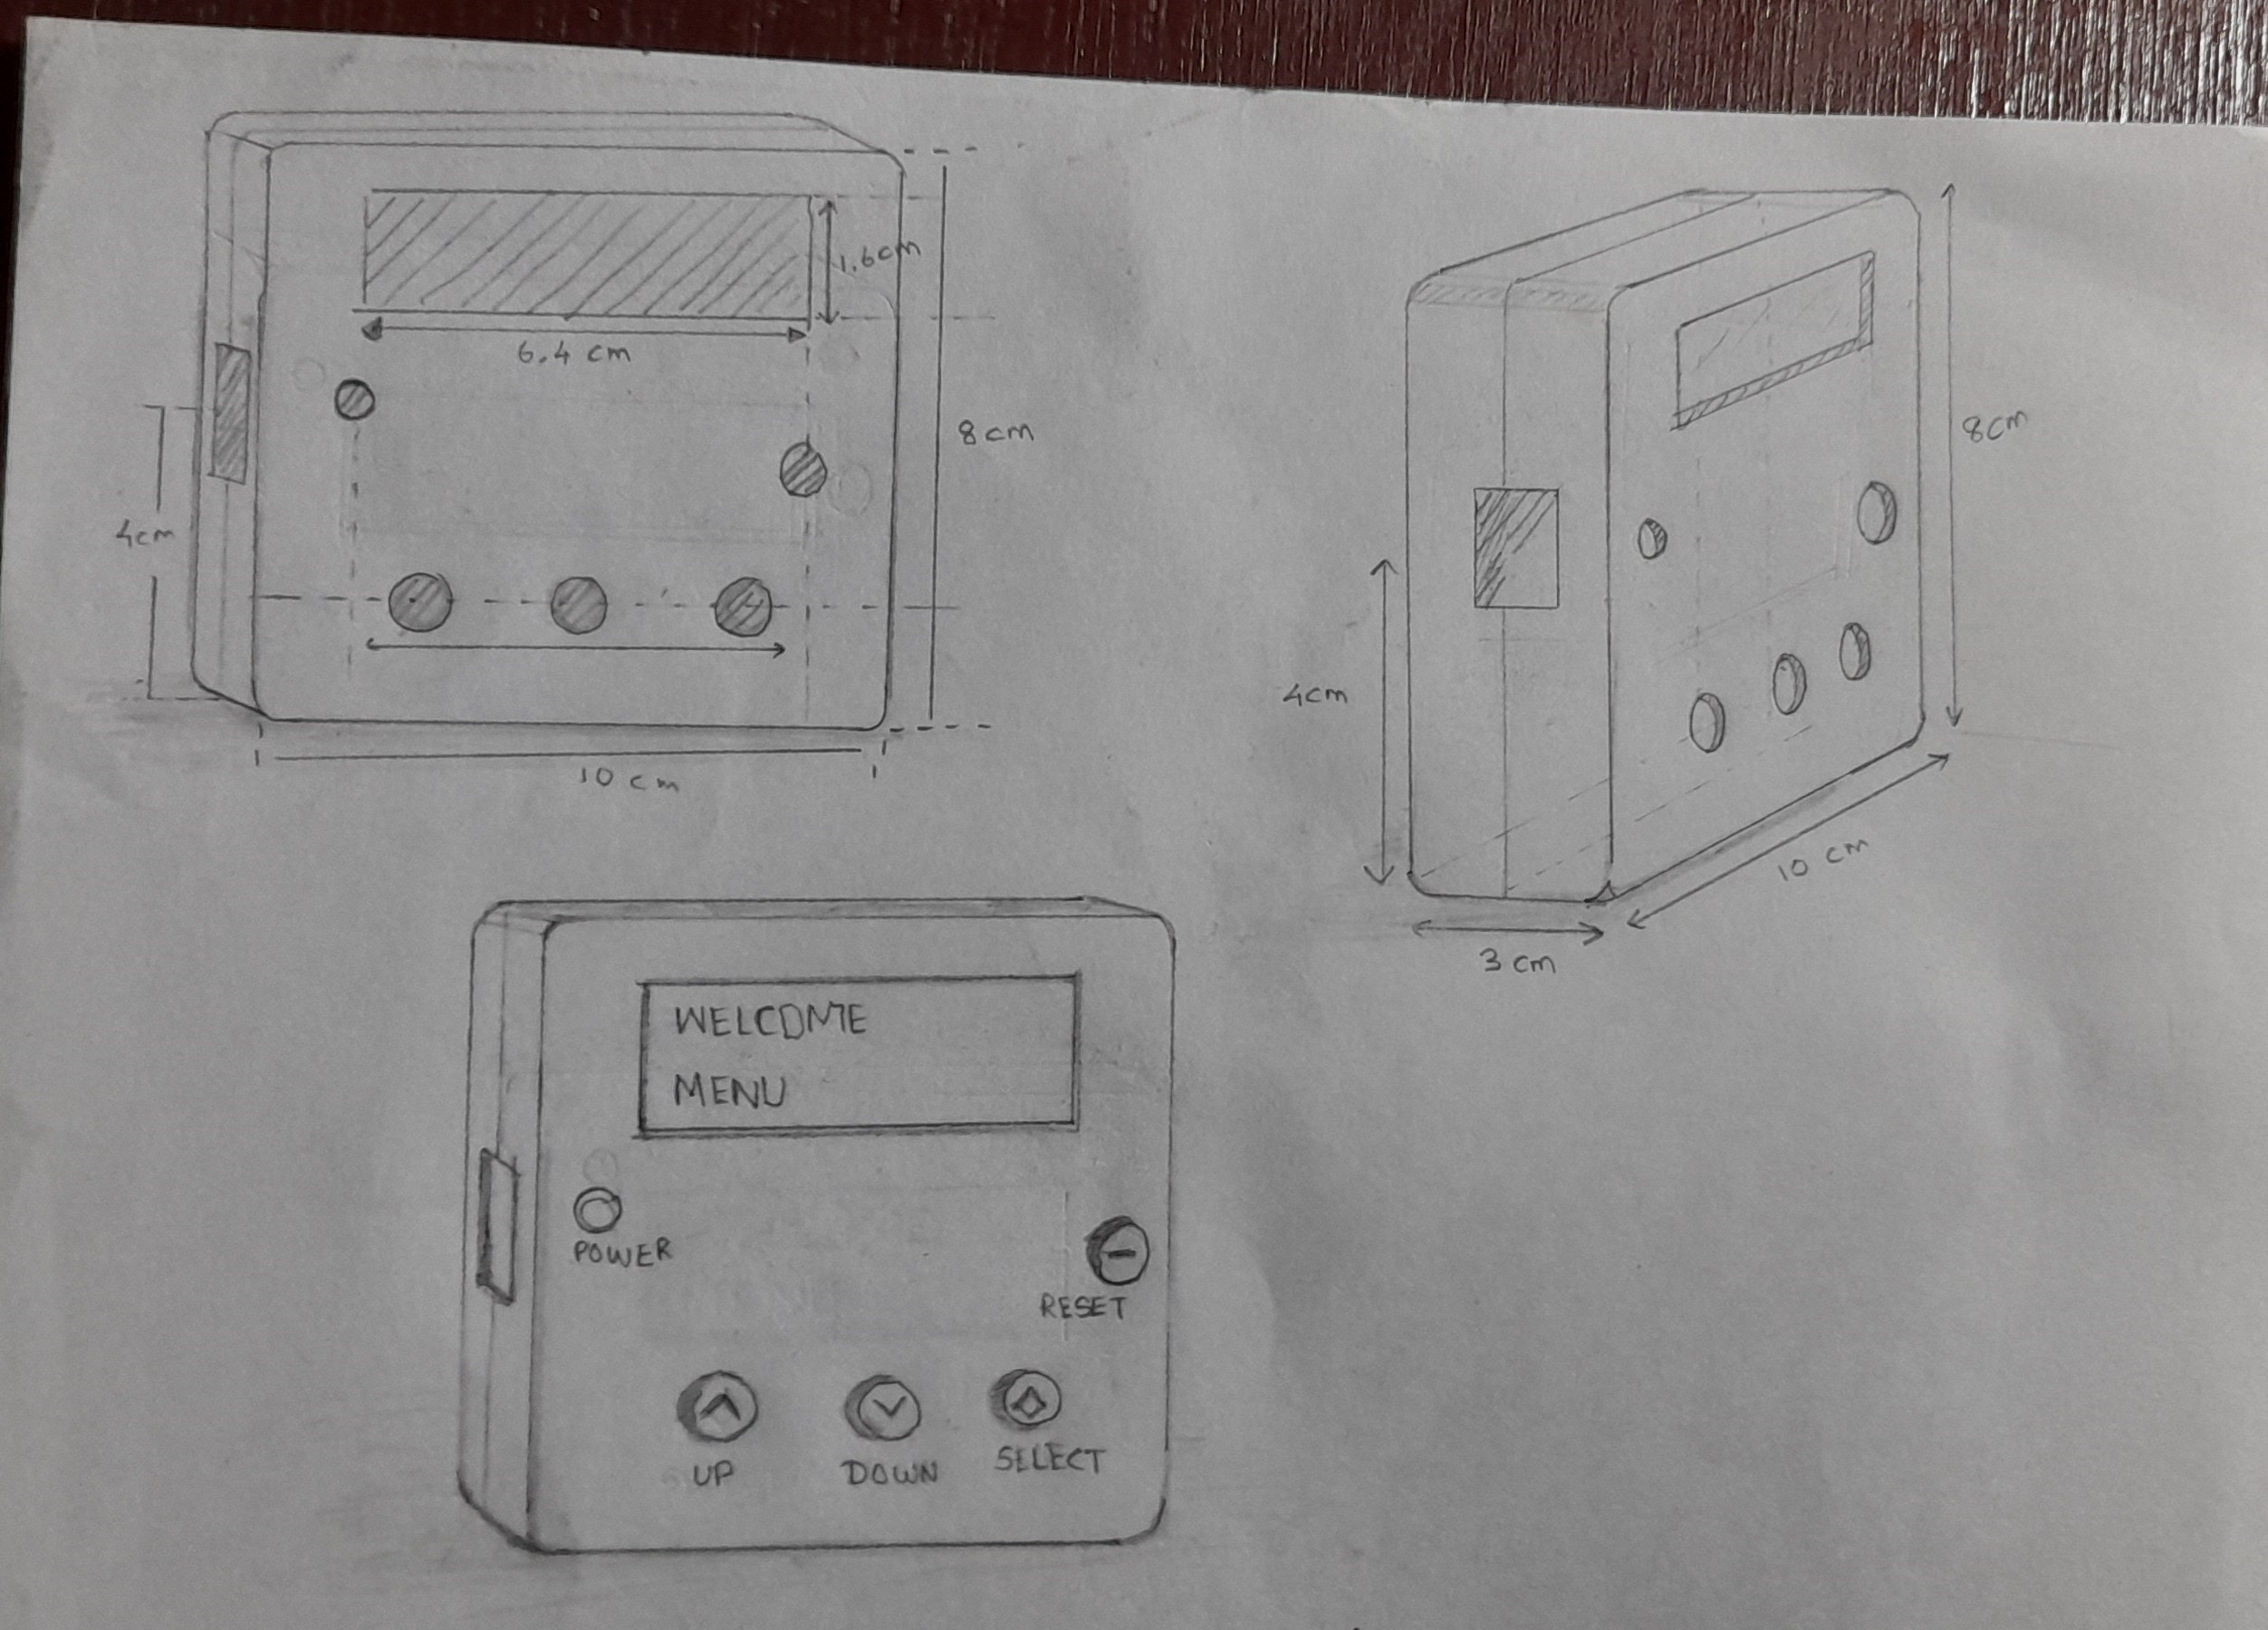 1.6cm
6.4 cm
8cm
4cm
10 cm
8cm
4cm
10 cm
3 cm
WELCOME
MENU
POWER
RESET
UP
DOWN
SELECT